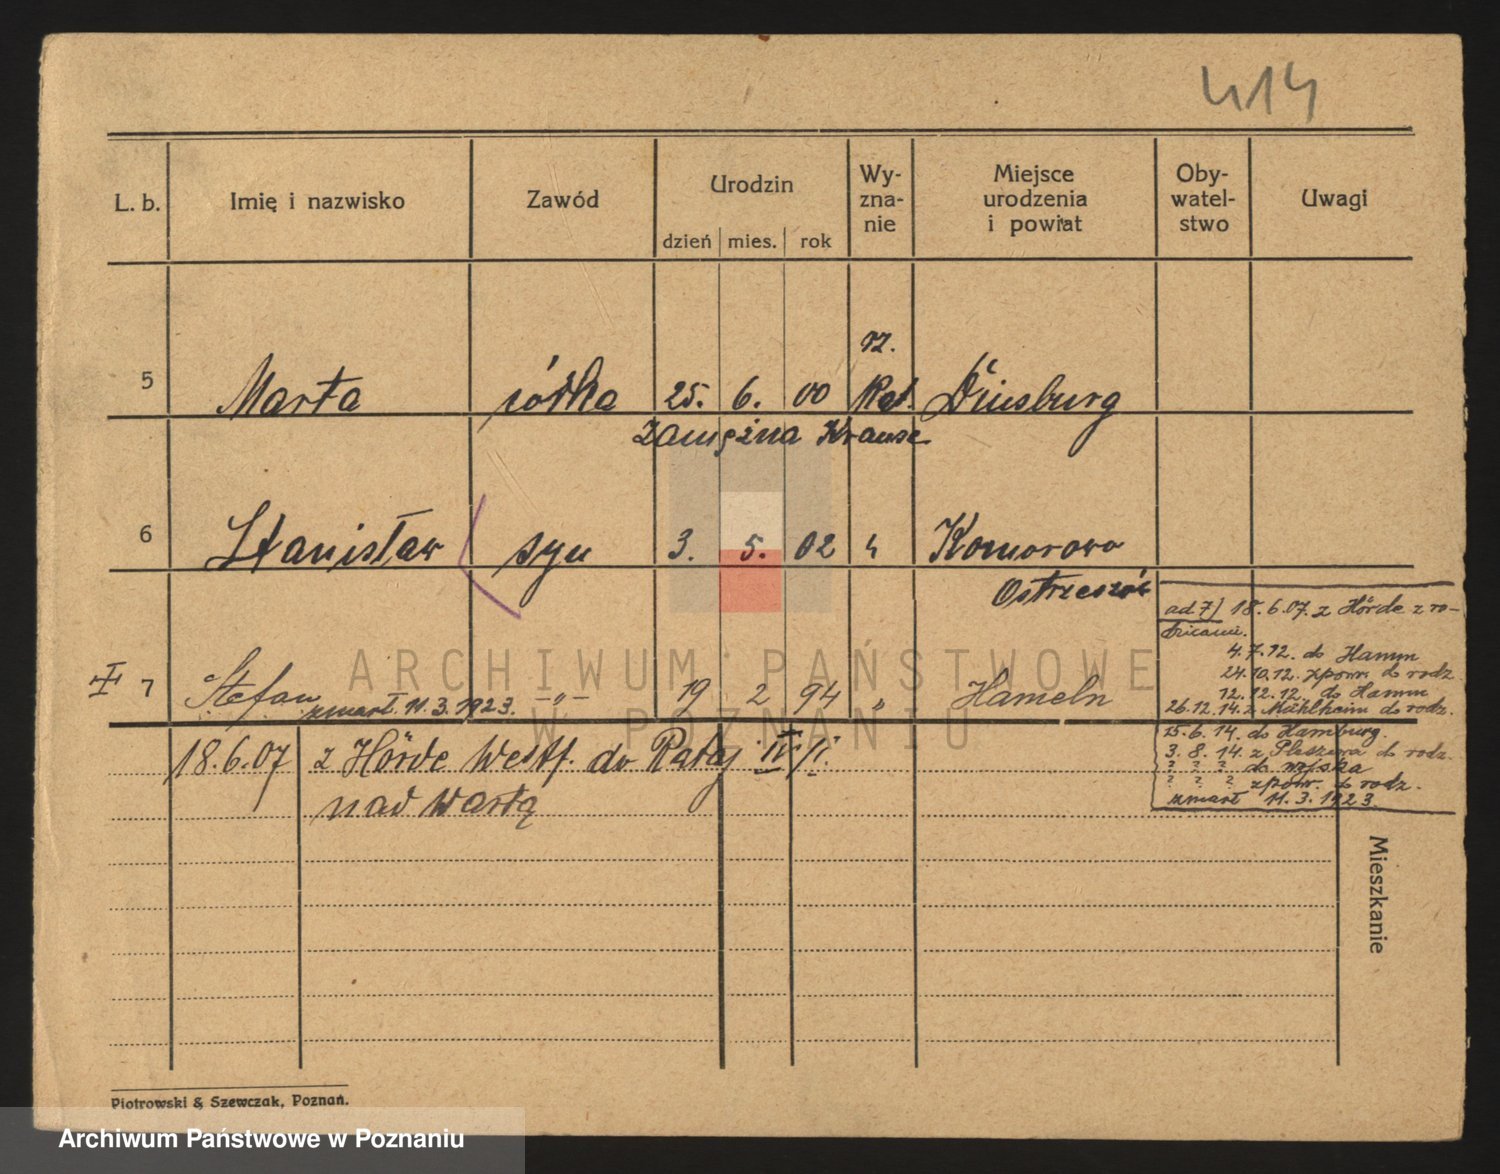 414
L. b. Imię i nazwisko Zawód Urodzin dzień mies. rok Wy-zna-nie Miejsce urodzenia i powiat Oby-watel-stwo Uwagi
rz.
5 Marta córka 25. 6. 00 Kat. Duisburg
Zamężna Krause
6 Stanisław syn 3. 5. 02 " Komorowo
Ostrzeszów
7 Stefan -"- 19 2 94 " Hameln
zmarł 11.3.1923.
ad 7) 18.6.07. z Hörde z ro-
dzicami.
4.7.12. do Hamm
24.10.12. zpow. do rodz.
12.12.12. do Hamm
26.12.14. z Mühlheim do rodz.
15.6.14. do Hamburg.
3.8.14. z Pleszewa do rodz.
? ? ? do wojska
? ? ? zpow. do rodz.
zmarł 11.3.1923.
18.6.07 z Hörde Westf. do Rataj IV/II.
nad Wartą
Mieszkanie
ARCHIWUM PAŃSTWOWE
W POZNANIU
Piotrowski & Szewczak, Poznań.
Archiwum Państwowe w Poznaniu